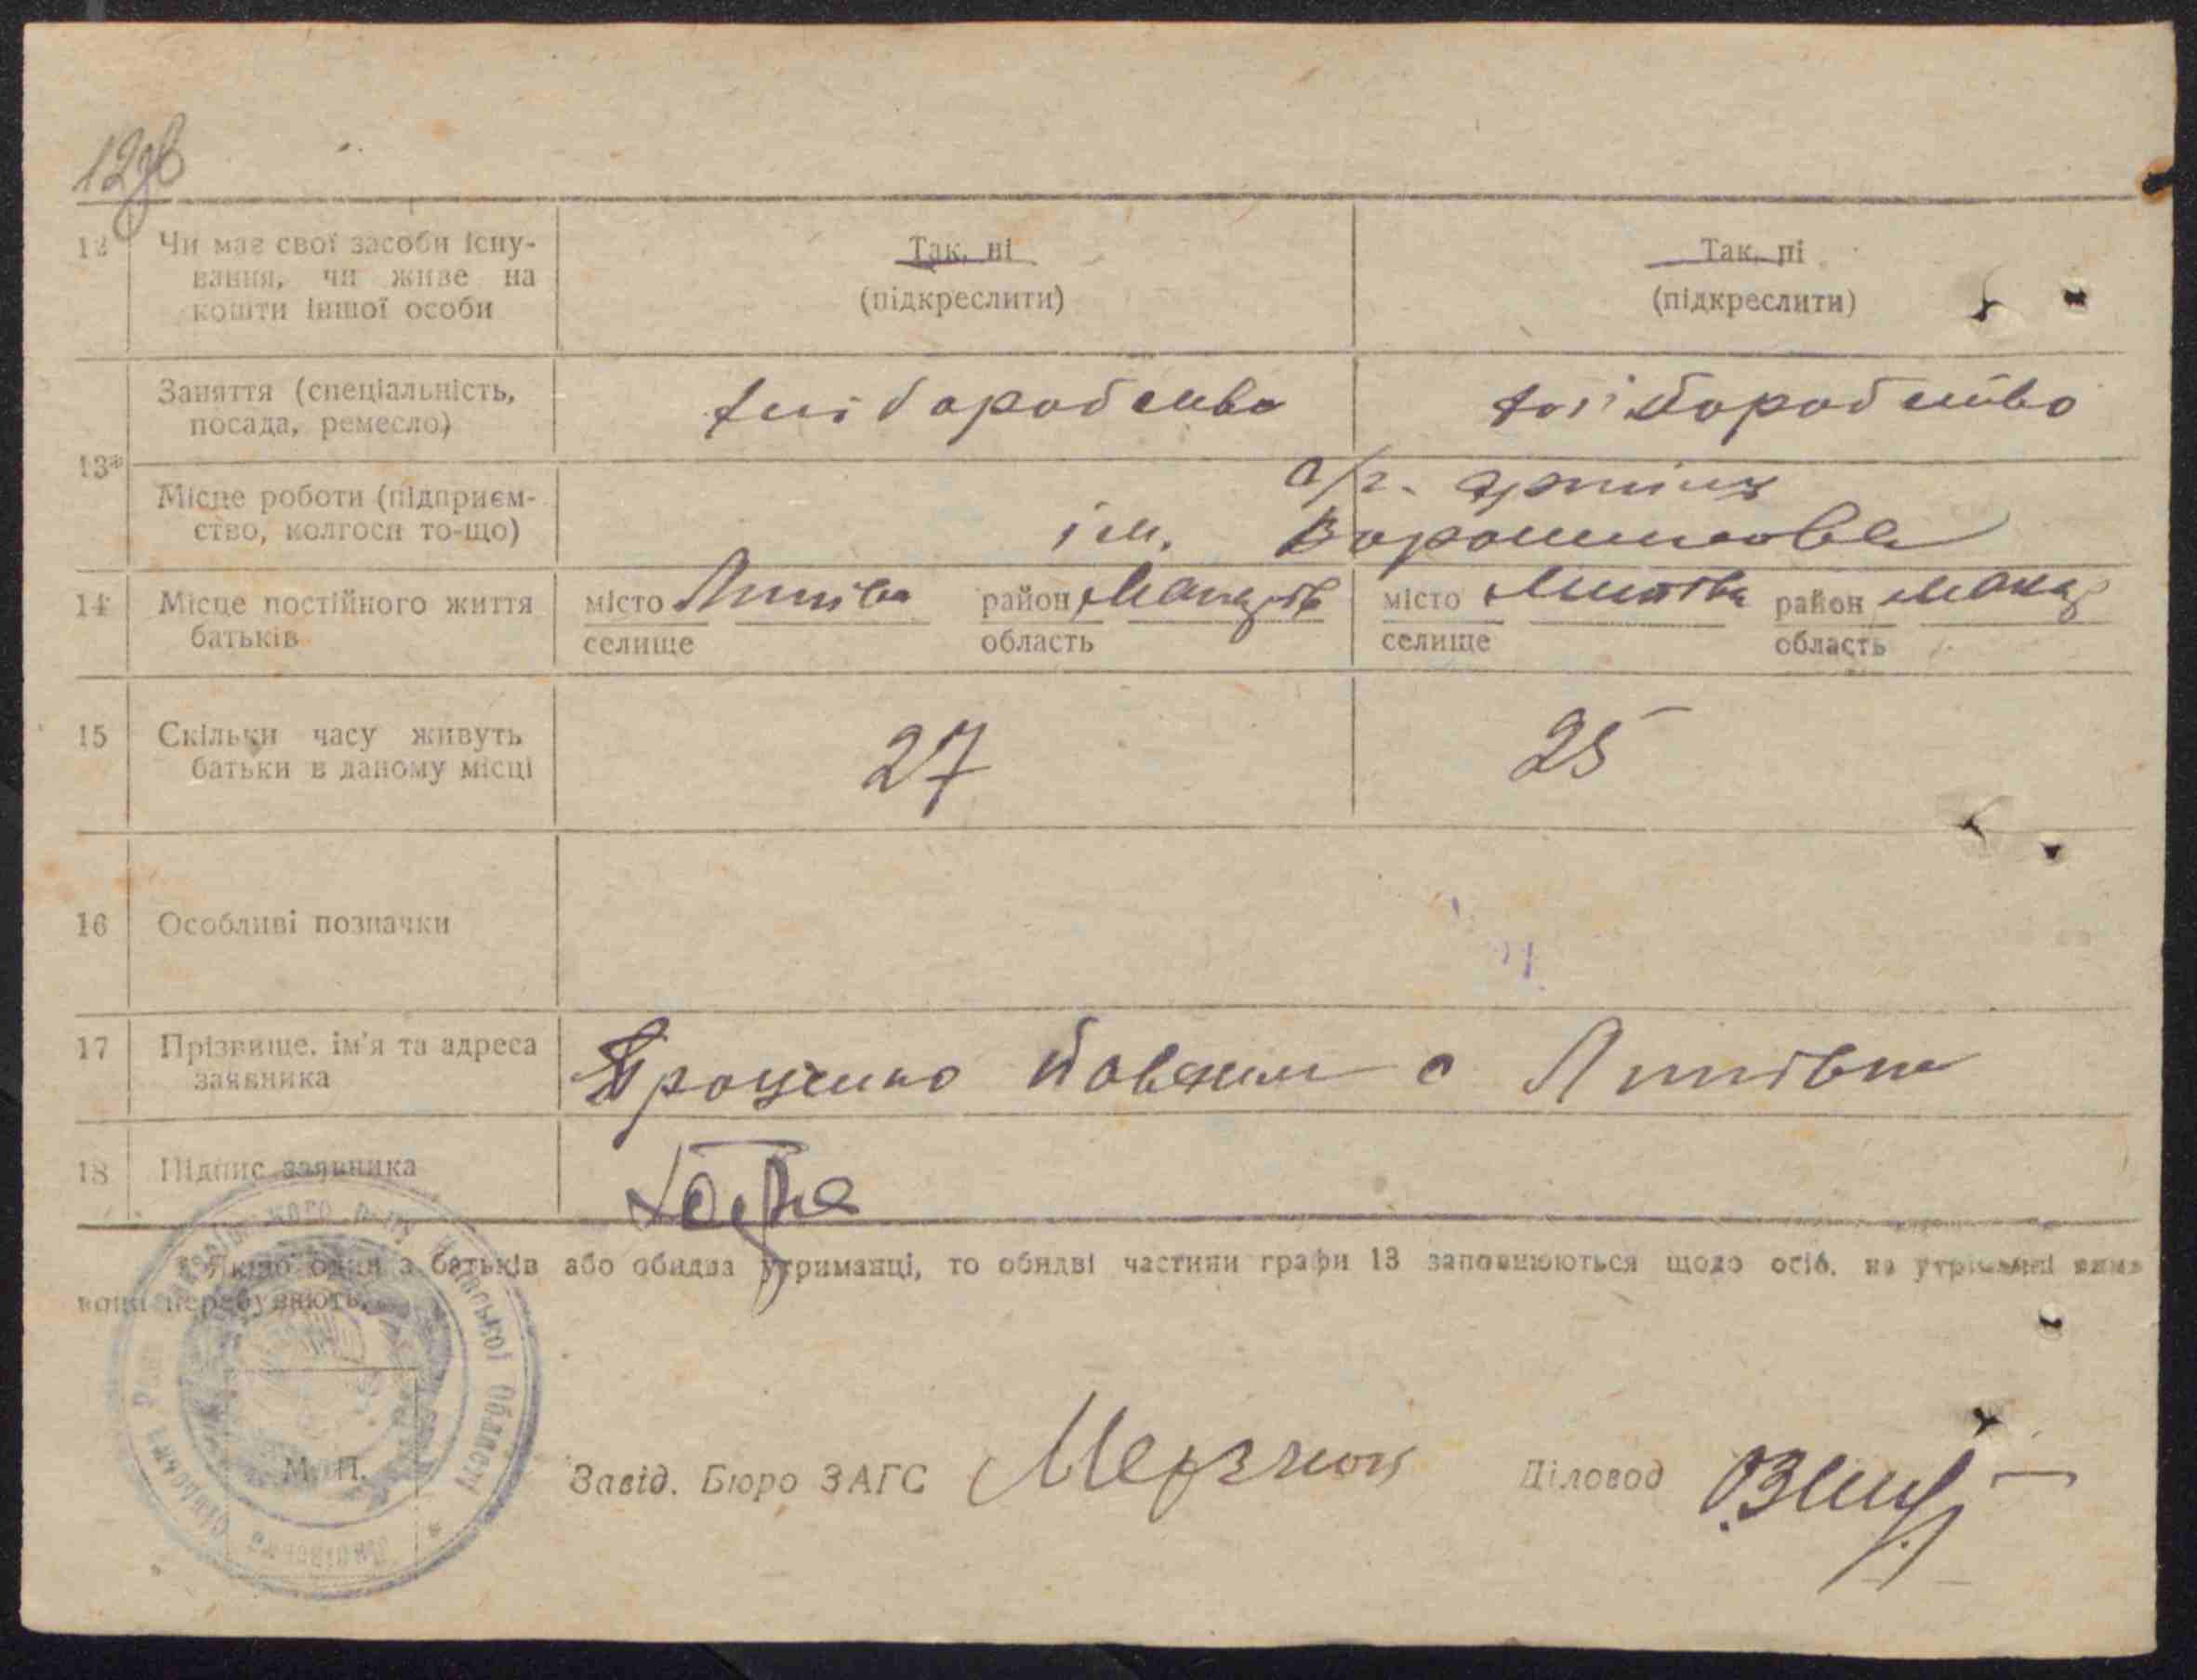 12
Чи має свої засоби існу-
вання, чи живе на
кошти іншої особи
Так, ні
(підкреслити)
Так, ні
(підкреслити)
13*
Заняття (спеціальність,
посада, ремесло)
хліборобство
хліборобство
Місце роботи (підприєм-
ство, колгосп то-що)
с/г. артіль
ім. Ворошилова
14
Місце постійного життя
батьків
місто Липівка район Макарів
селище область
місто Липівка район Макар
селище область
15
Скільки часу живуть
батьки в даному місці
27
25
16
Особливі позначки
17
Прізвище, ім'я та адреса
заявника
Проценко с Липівка
18
Підпис заявника
* Якщо один з батьків або обидва утриманці, то обидві частини графи 13 заповнюються щодо осіб, на утриманні яких
вони перебувають.
М. П.
Завід. Бюро ЗАГС
Діловод
Київської області